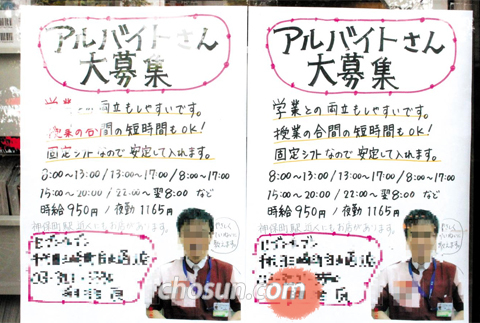 アルバイトさん
大募集
学業 両立もしやすいです。
授業の合間の短時間もOK!
固定シフトなので安定して入れます。
8:00〜13:00/13:00〜17:00/8:00〜17:00
15:00〜20:00/22:00〜翌8:00 など
時給950円/夜勤1165円
神保町駅近くにもお店があります。
アルバイトさん
大募集
学業との両立もしやすいです。
授業の合間の短時間もOK!
固定シフトなので安定して入れます。
8:00〜13:00/13:00〜17:00/8:00〜17:00
15:00〜20:00/22:00〜翌8:00 など
時給950円/夜勤1165円
神保町駅近くにもお店があります。
chosun.com